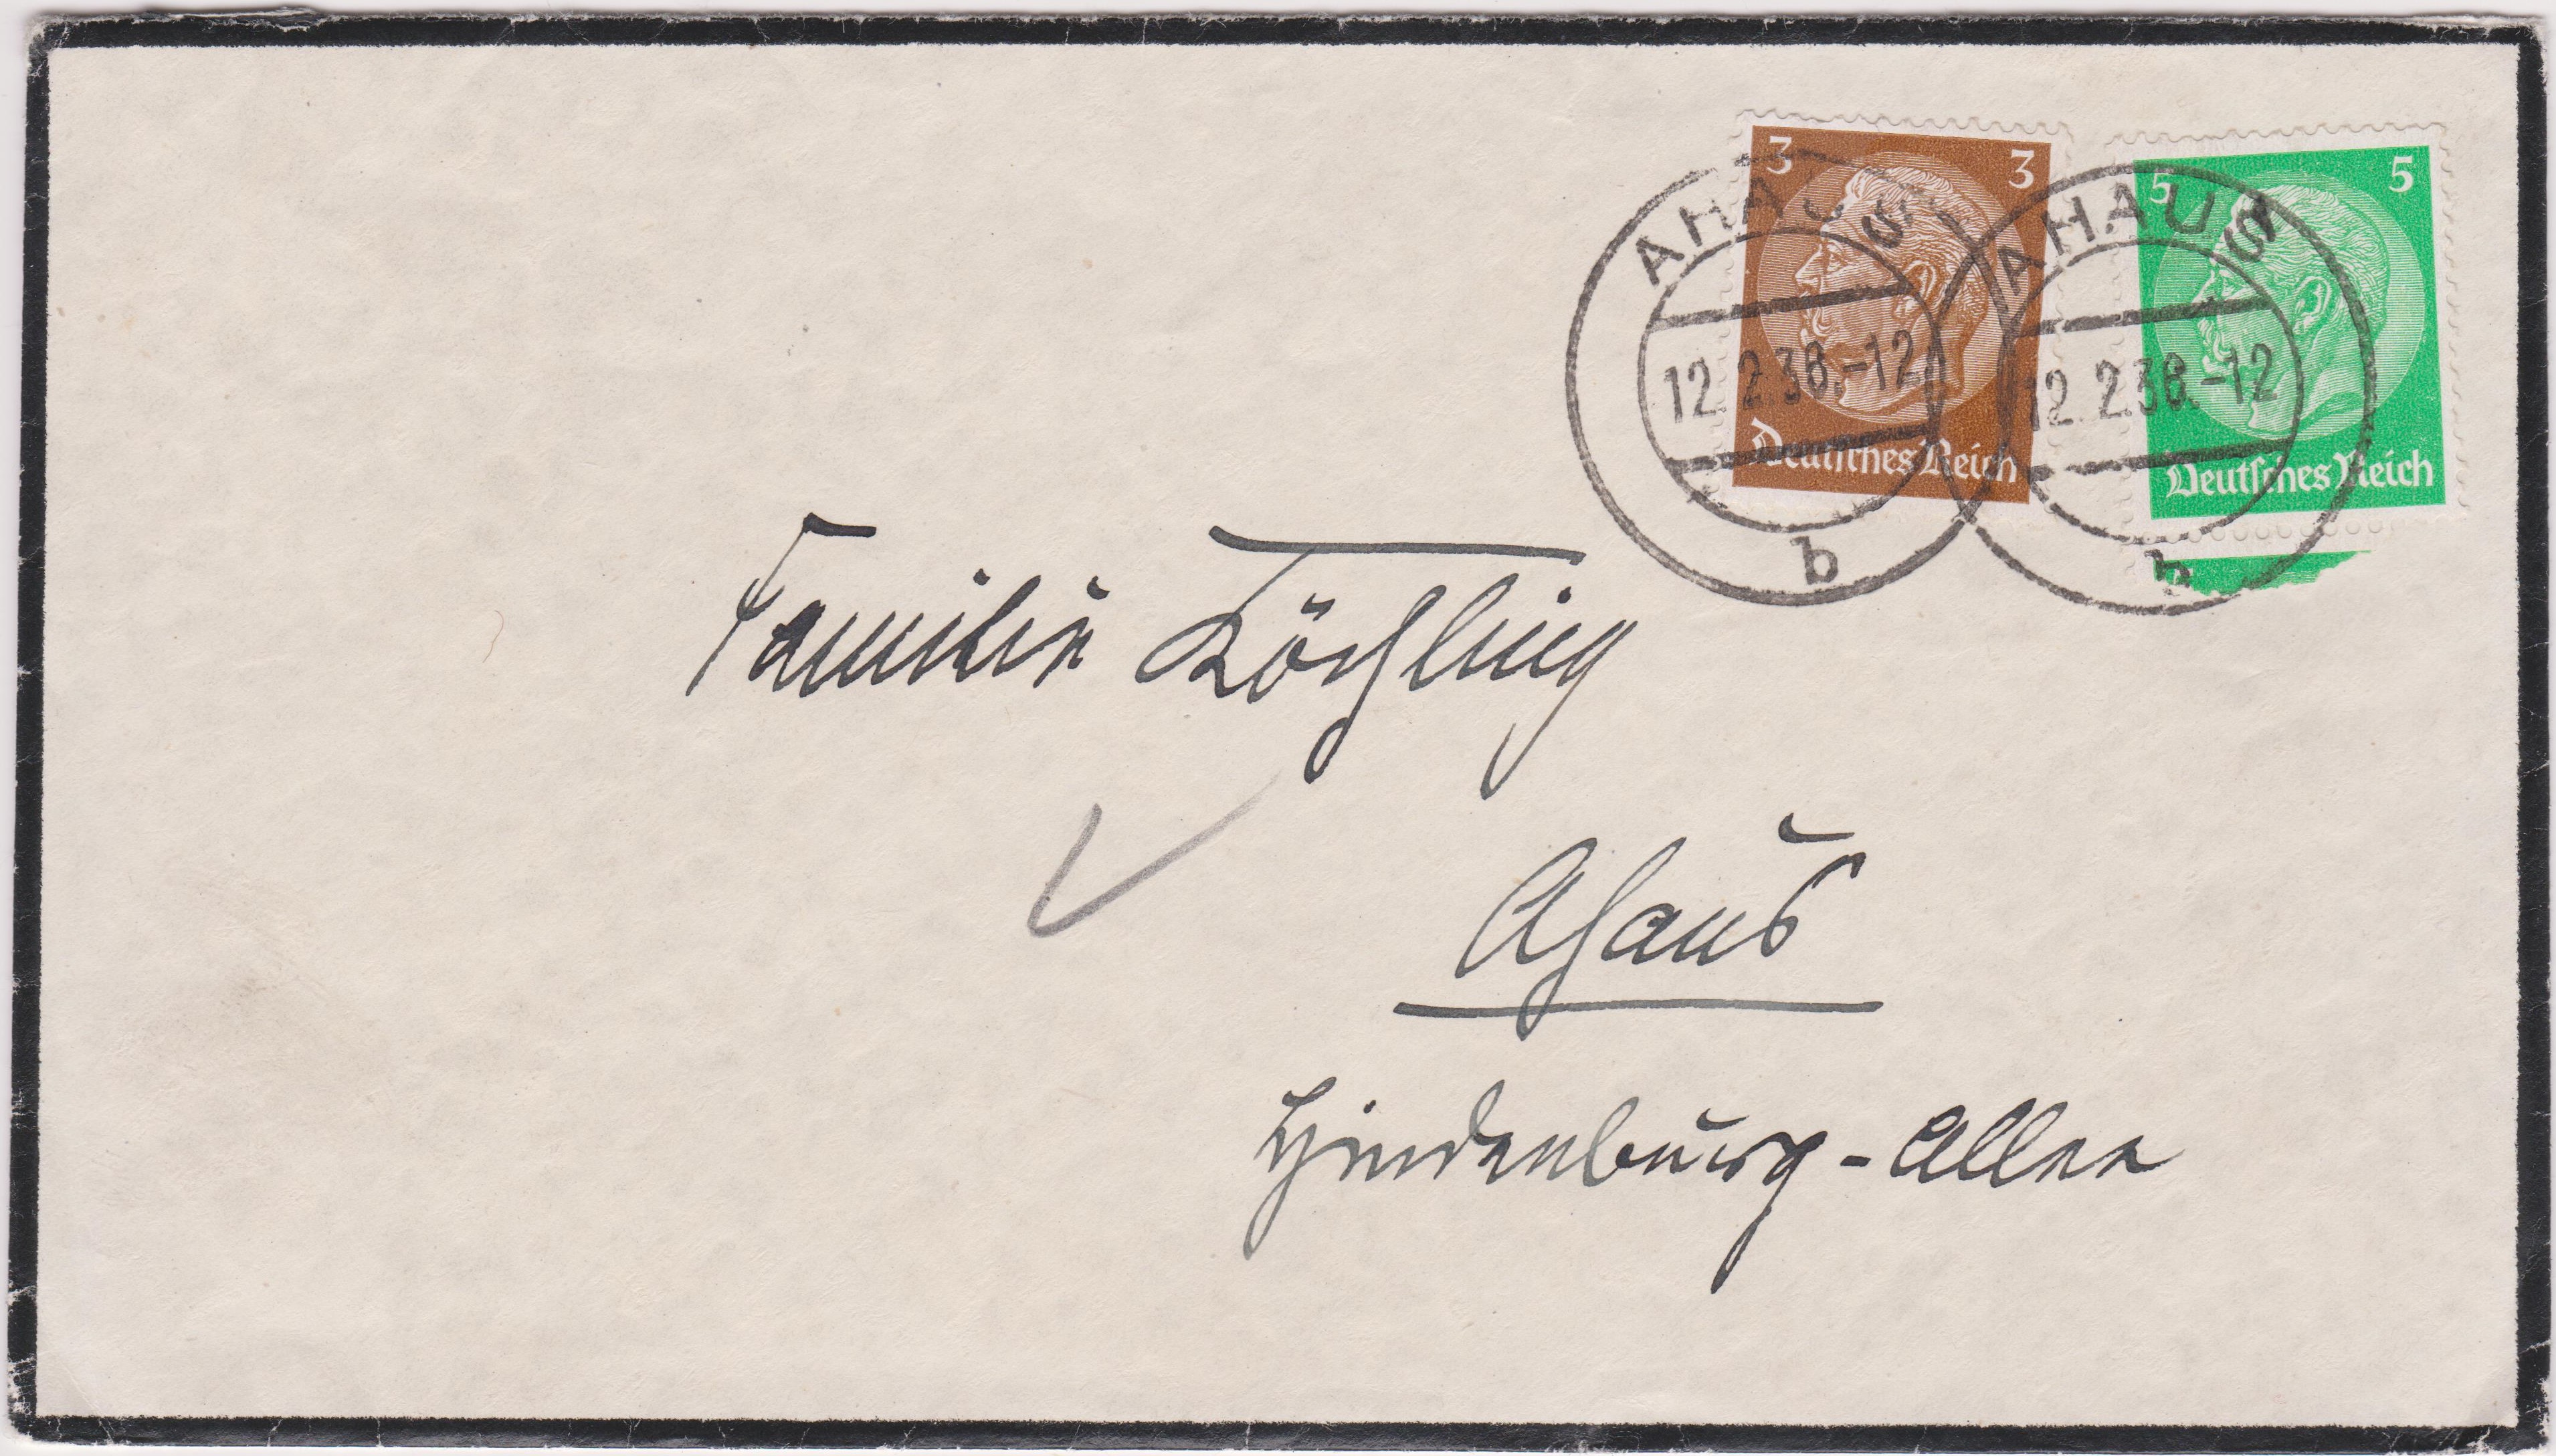 3 3
Deutsches Reich
5 5
Deutsches Reich
AHAUS
12.2.38.-12
b
AHAUS
12.2.38.-12
b
Familie Köchling
Ahaus
Hindenburg-Allee